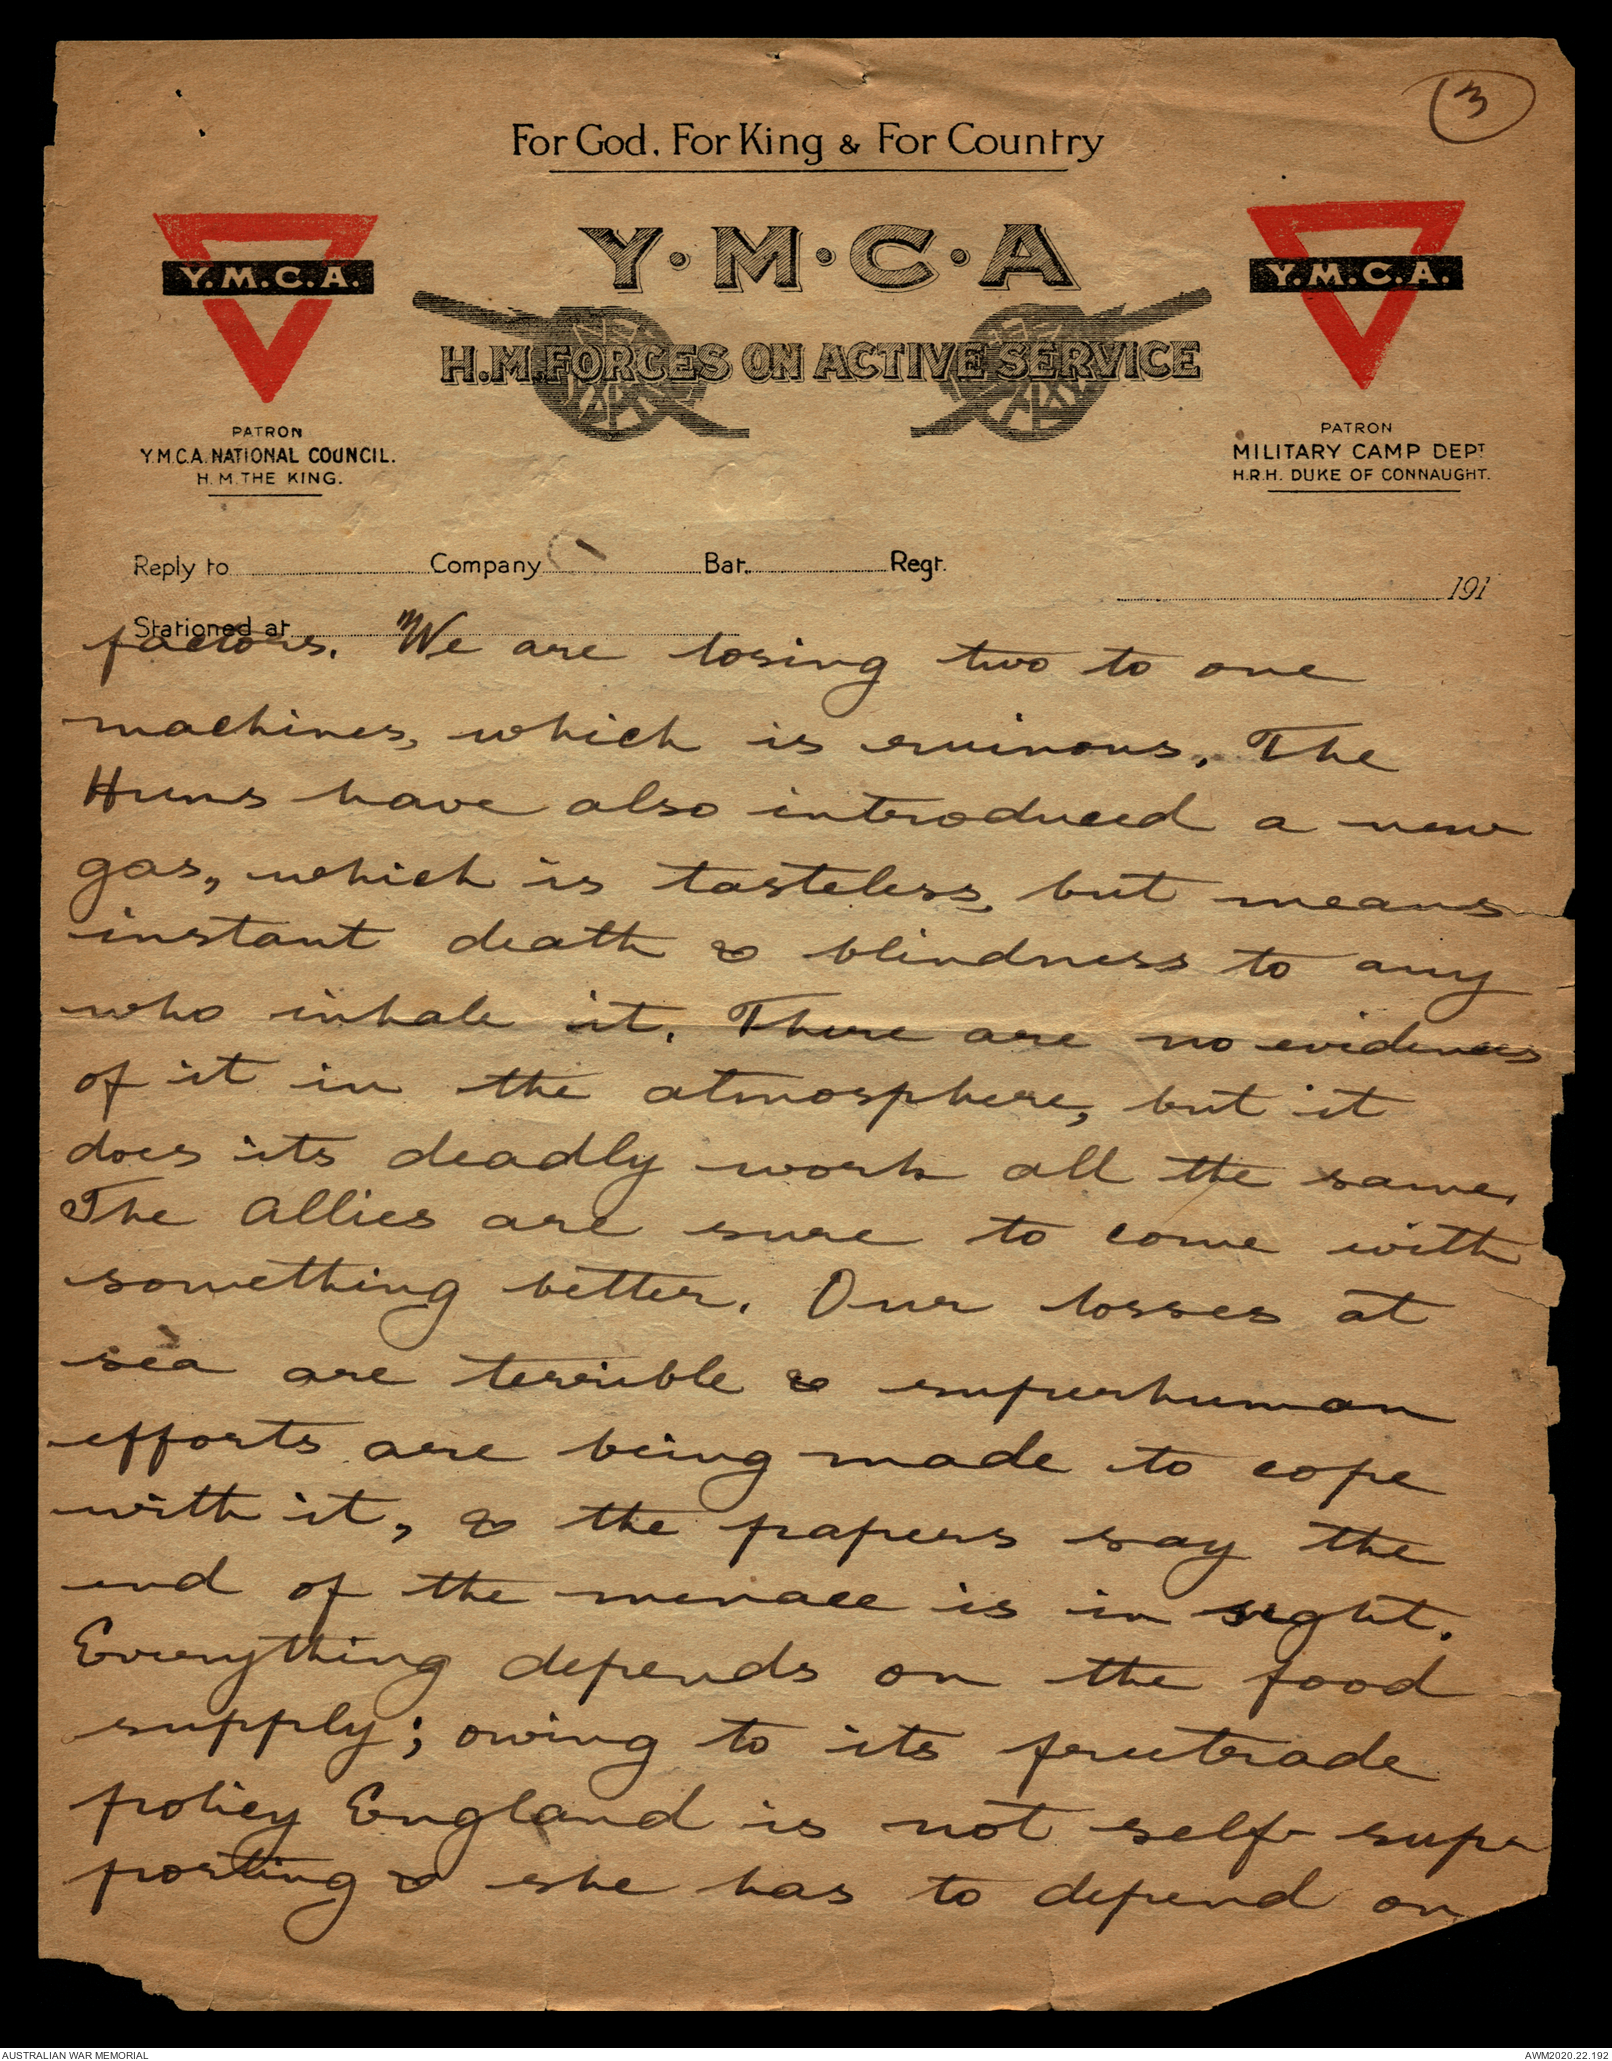 3
For God, For King & For Country
Y·M·C·A
Y.M.C.A.
Y.M.C.A.
H.M. FORCES ON ACTIVE SERVICE
PATRON
Y.M.C.A. NATIONAL COUNCIL.
H.M. THE KING.
PATRON
MILITARY CAMP DEPT
H.R.H. DUKE OF CONNAUGHT.
Reply to Company Bat. Regt.
191
Stationed at
factors. We are losing two to one
machines, which is ruinous. The
Huns have also introduced a new
gas, which is tasteless, but means
instant death & blindness to any
who inhale it. There are no evidences
of it in the atmosphere, but it
does its deadly work all the same.
The Allies are sure to come with
something better. Our losses at
sea are terrible & superhuman
efforts are being made to cope
with it, & the papers say the
end of the menace is in sight.
Everything depends on the food
supply; owing to its freetrade
policy England is not self-sup-
porting & she has to depend on
AUSTRALIAN WAR MEMORIAL
AWM2020.22.192